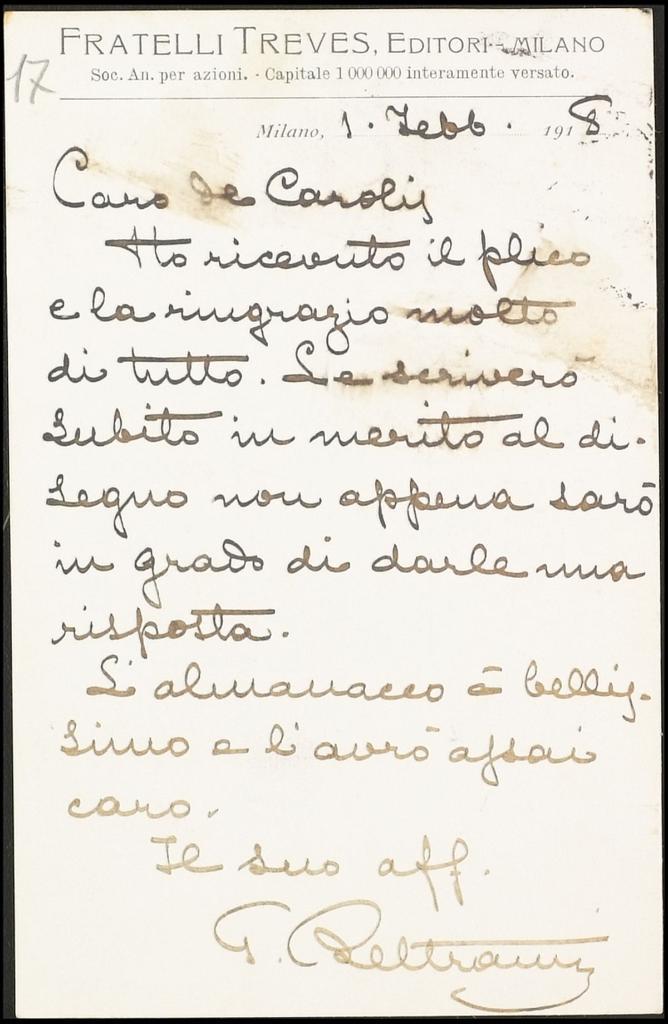 17
FRATELLI TREVES, EDITORI - MILANO
Soc. An. per azioni. - Capitale 1 000 000 interamente versato.
Milano, 1. Febb. 1918
Caro de Carolis
Ho ricevuto il plico
e la ringrazio molto
di tutto. Le scriverò
subito in merito al di-
segno non appena sarò
in grado di darle una
risposta.
L'almanacco è bellis-
simo e l'avrò assai
caro.
Il suo aff.
T. Beltrami